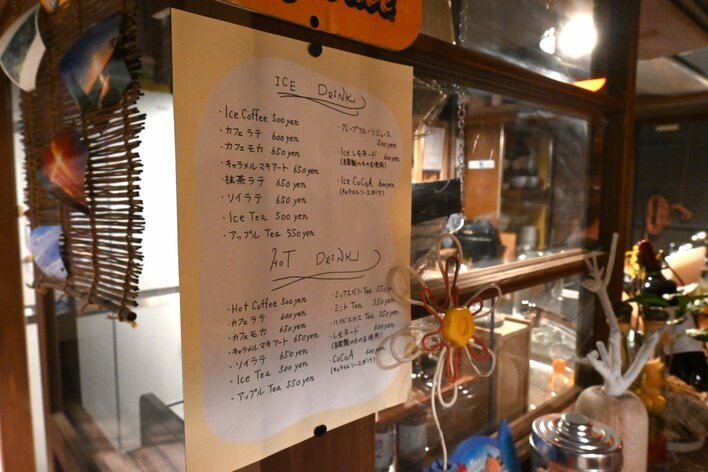 ICE DRINK
・Ice Coffee 500yen
・カフェラテ 600yen
・カフェモカ 650yen
・キャラメルマキアート 650yen
・抹茶ラテ 650yen
・ソイラテ 650yen
・Ice Tea 500yen
・アップル Tea 550yen
・グレープフルーツジュース
500yen
・Ice レモネード 600yen
(自家製のもの使用)
・Ice CoCoA 600yen
(キャラメルソースがけ)
HOT DRINK
・Hot Coffee 500yen
・カフェラテ 600yen
・カフェモカ 650yen
・キャラメルマキアート 650yen
・ソイラテ 650yen
・Ice Tea 500yen
・アップル Tea 550yen
・ミックスベリーTea 550yen
・ミント Tea 550yen
・ハイビスカス Tea 550yen
・レモネード 600yen
(自家製のもの使用)
・CoCoA 600yen
(キャラメルソースがけ)